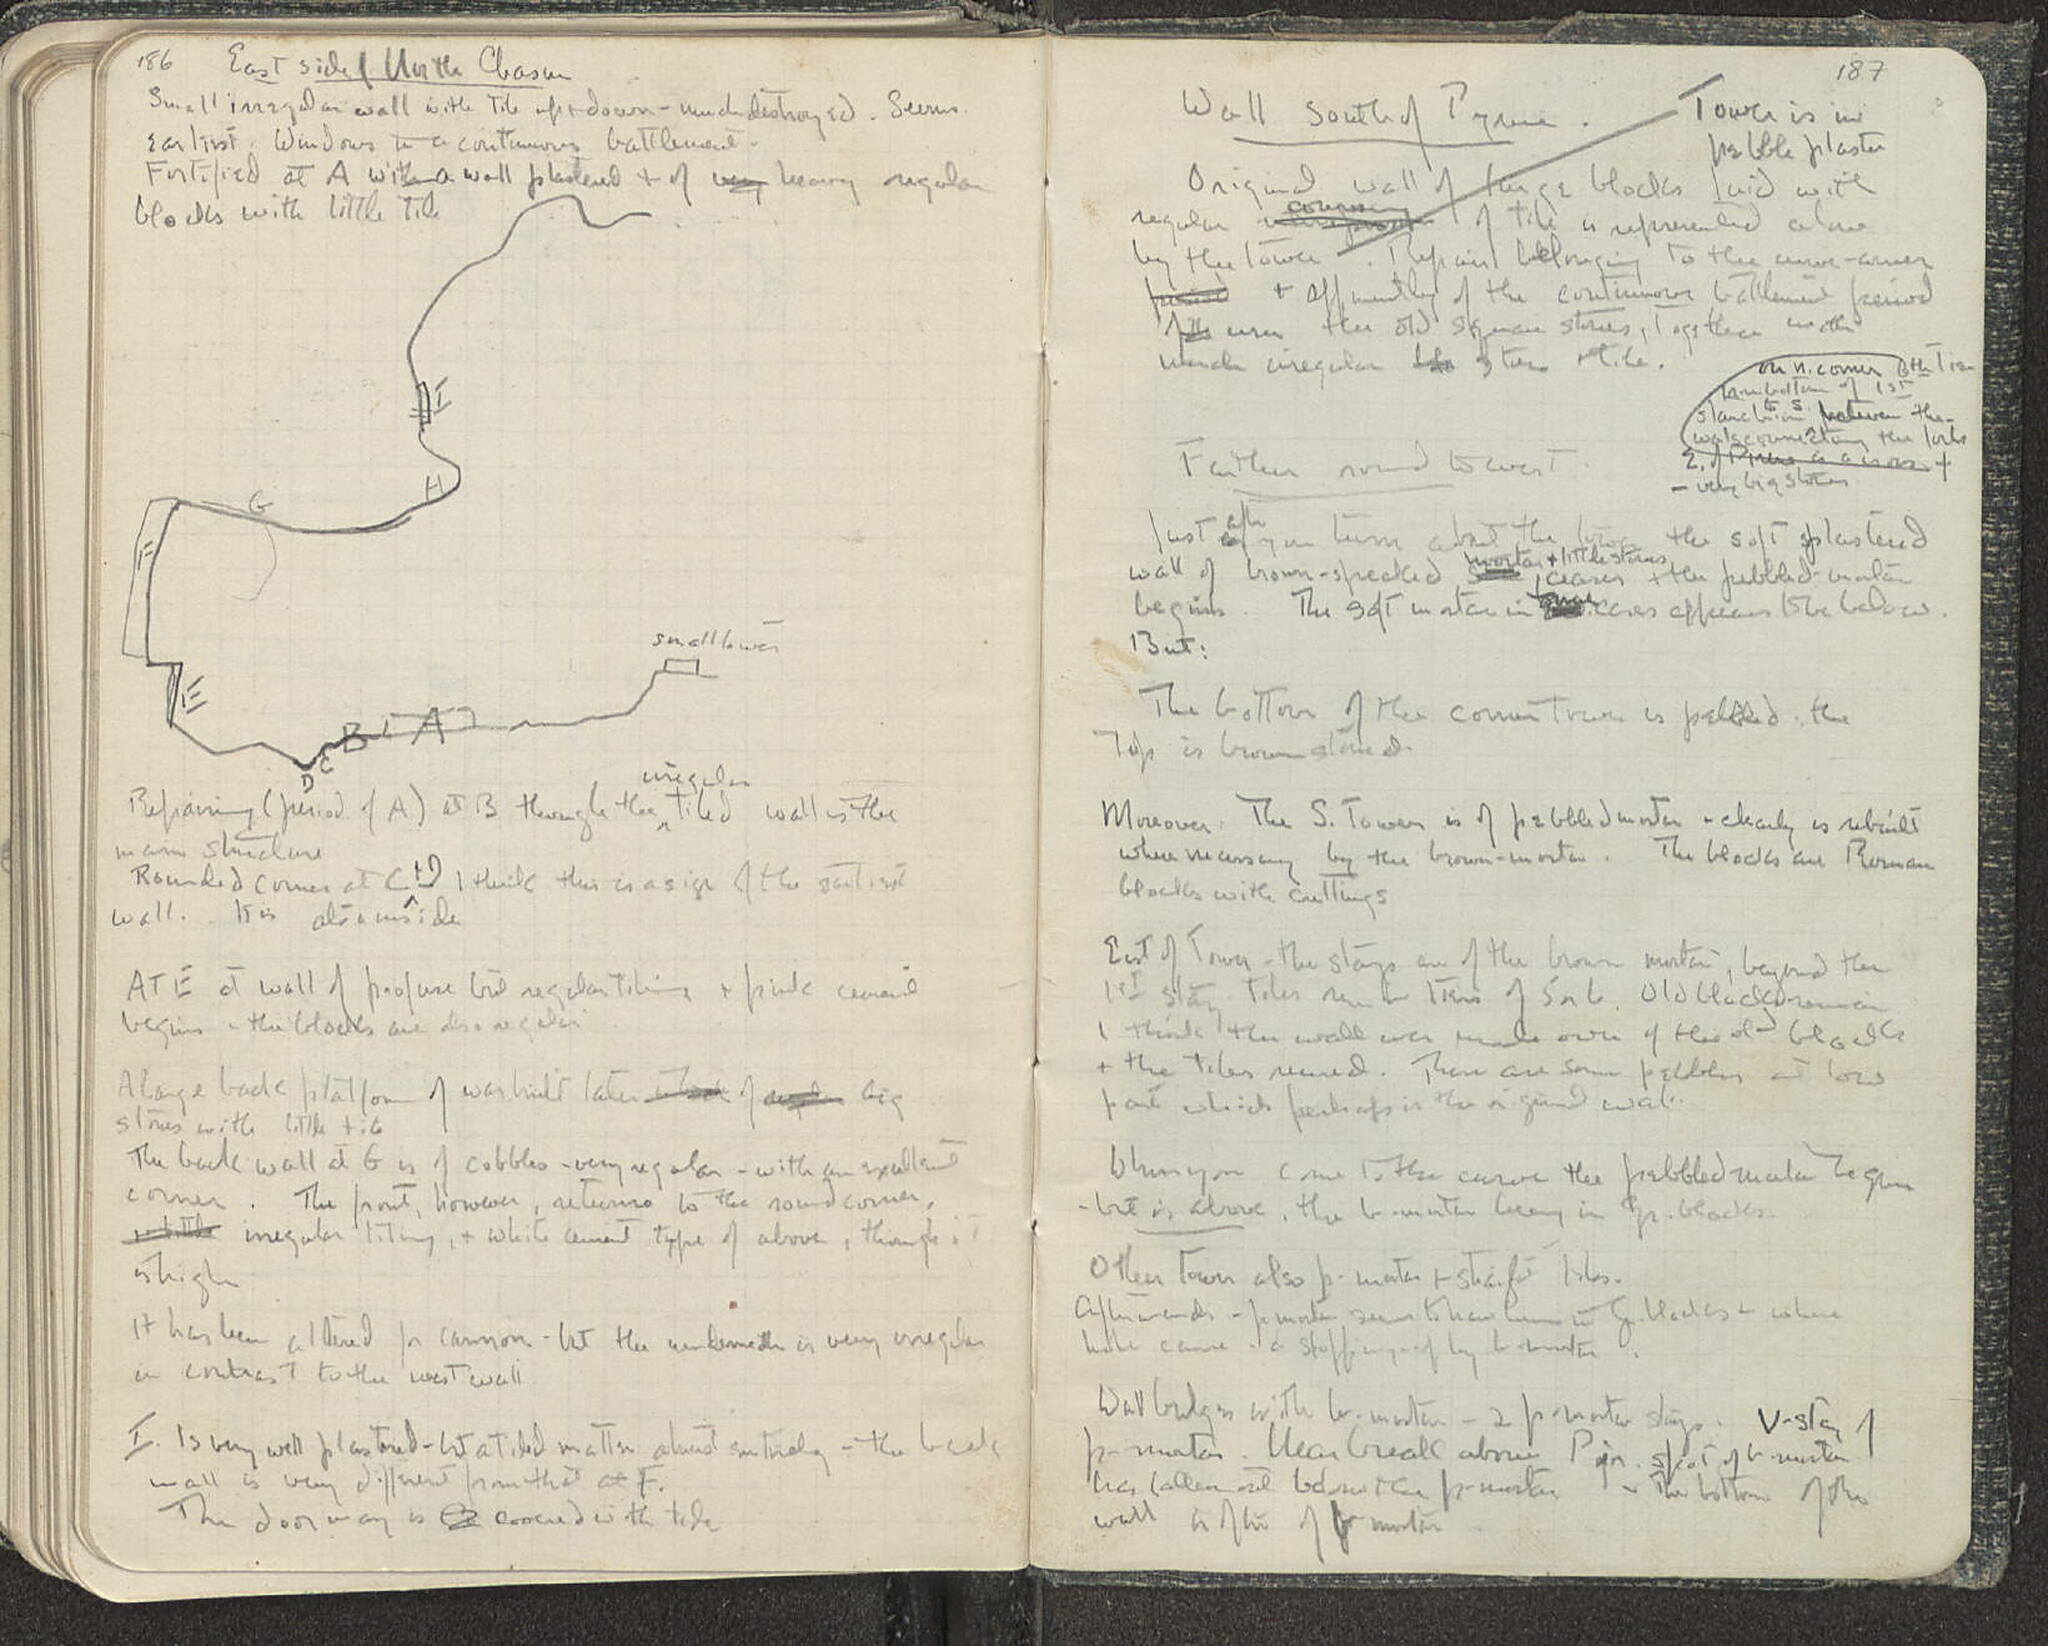 186
East side of North Chasm
Small irregular wall with tile up + down - much destroyed. Seems
earliest. Windows in a continuous battlement.
Fortified at A with a wall plastered + of very heavy regular
blocks with little tile
I
H
G
F
E
small tower
B A
C
D
irregular
Repairing (period of A) at B though the tiled wall is the
main structure
Rounded corner at C + D I think this is a sign of the earliest
wall. It is also inside
At E a wall of profuse but regular tiling + pink cement
begins - the blocks are also regular
A large back platform of was built later of big
stones with little tile
The back wall at G is of cobbles - very regular - with an excellent
corner. The front, however, returns to the round corner,
irregular tiling, + white cement type of above, though it
is high
It has been altered for cannon - but the underneath is very irregular
in contrast to the west wall
I. Is very well plastered - but a tiled matter almost entirely - the back
wall is very different from that at F.
The doorway is covered with tile
187
Wall South of Pyrne.
Tower is in
pebble plaster
Original wall of large blocks laid with
coursing
regular of tile is represented alone
by the tower. Repairs belonging to the curve-corner
period + apparently of the continuous battlement period
use the old square stones, together with
much irregular stone + tile.
on N. corner
from bottom of 1st
to S. between the
walls connecting the forts
E. of +
- very big stones
Farther round to west.
after
Just you turn about the tower the soft plastered
mortar + little stones
wall of brown-specked ceases + the pebbled-mortar
some
begins. The soft mortar in cases appears to be below.
But:
The bottom of the corner tower is pebbled, the
top is brown stoned.
Moreover. The S. Tower is of pebbled mortar - clearly is rebuilt
where necessary by the brown-mortar. The blocks are Roman
blocks with cuttings
East of Tower - the stays are of the brown mortar, beyond the
1st stay. Tiles run in tiers of 5 or 6. Old blocks remain
I think the wall was made over of the old blocks
+ the tiles reused. There are some pebbles at low
part which perhaps is the original wall.
When you come to the curve the pebbled mortar begins
- but is above, the b-mortar being in gr. blocks.
Other tower also p-mortar + straight tiles.
Afterwards - p-mortar seems to have been in gr. blocks - where
hole came - a stopping-up by b-mortar.
Wall bulges with b-mortar - 2 p-mortar stays. V-stay of
p-mortar. Near break above Pyr. spot of b-mortar
has fallen out below the p-mortar - The bottom of the
wall is often of b mortar